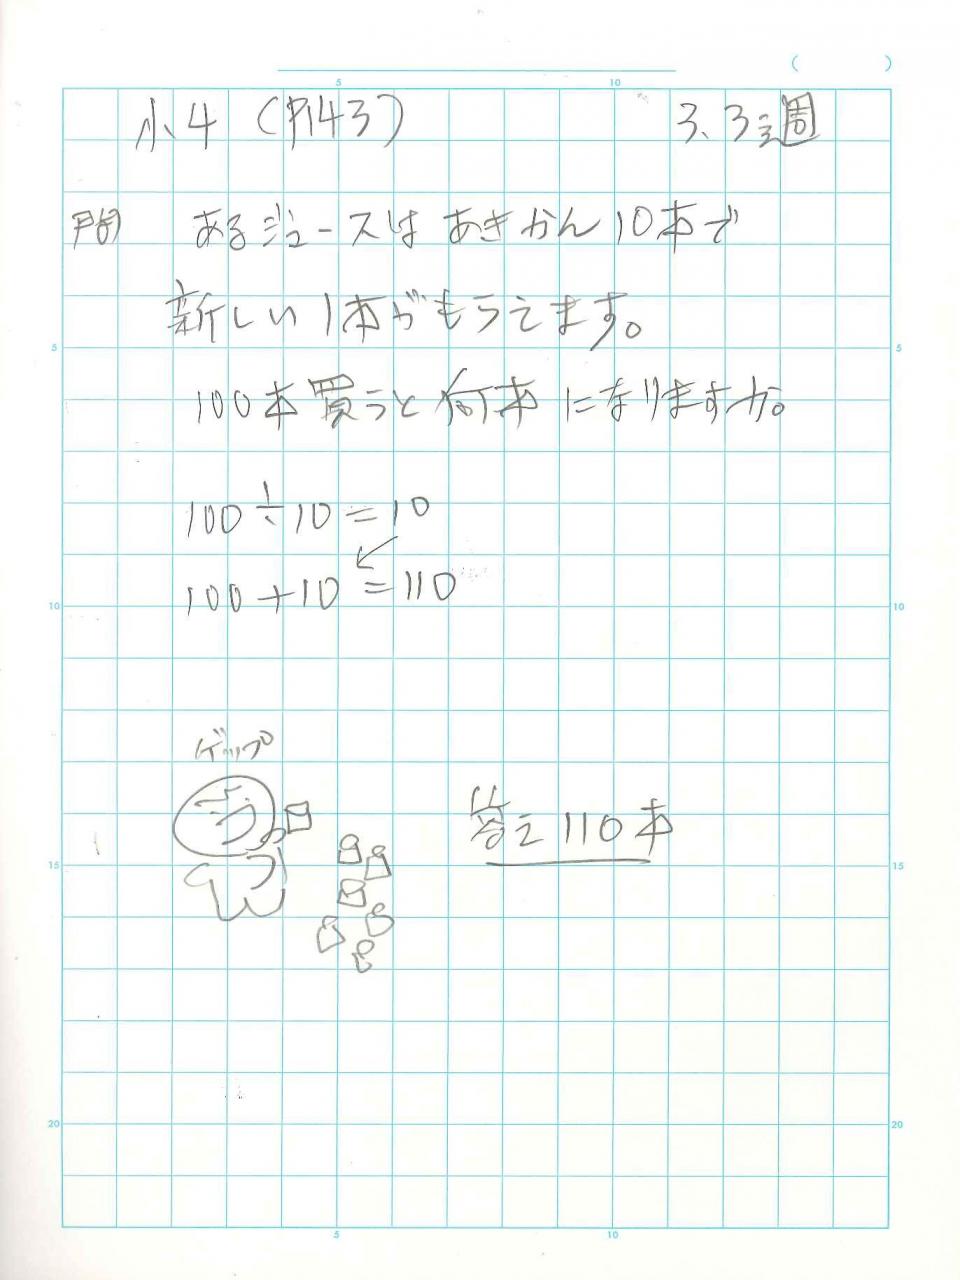 小4 (P143) 3.3週
問 あるジュースはあきかん10本で
新しい1本がもらえます。
100本買うと何本になりますか。
100÷10=10
100+10=110
ゲップ
答え110本